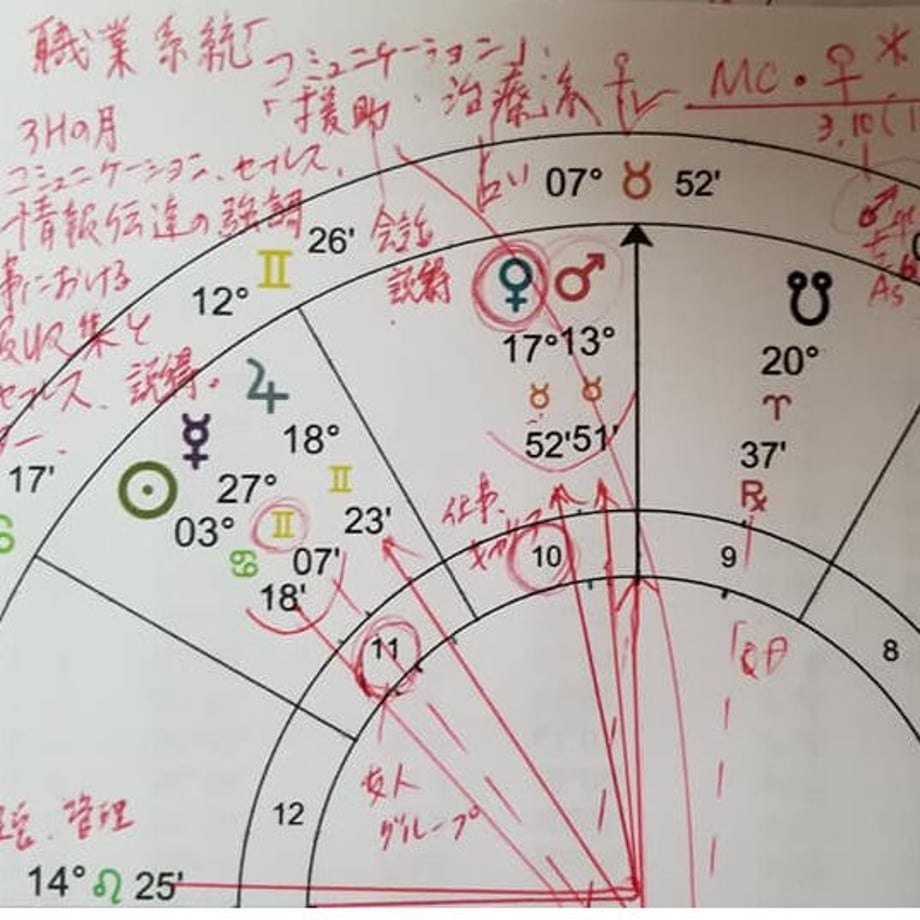 職業系統「コミュニケーション」.
「援助・治療系 ♀
MC・♀ *
3.10(1
3Hの月
コミュニケーション、セールス、
情報伝達の強調
事における
収集と
セールス、説得。
ー.
占い
会話
説得
07° ♉ 52'
26'
♊
12°
17'
♀ ♂
17° 13°
♉ ♉
52' 51'
☋
20°
♈
37'
℞
♂
As
♃
18°
♊
23'
☿
27°
♊
07'
☉
03°
♋
18'
仕事、
10
9
8
11
12
友人
グループ
管理
14° ♌ 25'